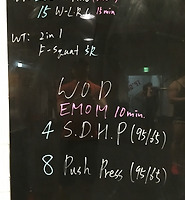 15 W-L-R-L 13 min
WT: 2 in 1
F-Squat 5R
WOD
EMOM 10 min.
4 S.D.H.P (95/65)
8 Push Press (95/65)